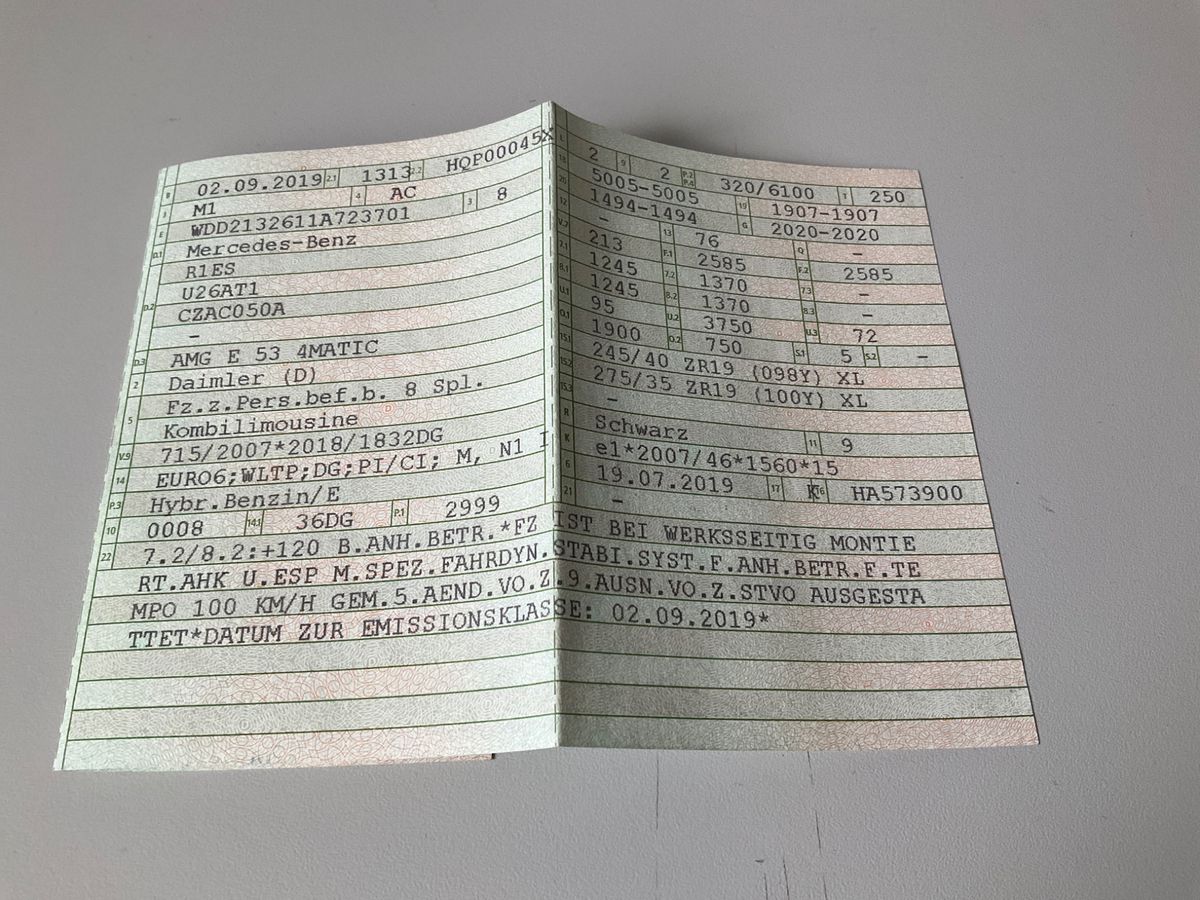 B 02.09.2019 2.1 1313 2.2 HQP00045X
J M1 4 AC
E WDD2132611A723701 3 8
D.1 Mercedes-Benz
R1ES
U26AT1
D.2 CZAC050A
–
D.3 AMG E 53 4MATIC
2 Daimler (D)
Fz.z.Pers.bef.b. 8 Spl.
5 Kombilimousine
V.9 715/2007*2018/1832DG
14 EURO6;WLTP;DG;PI/CI; M, N1 I
P.3 Hybr.Benzin/E
10 0008 14.1 36DG P.1 2999
L 2 9 2 P.2 P.4 320/6100 T 250
18 5005-5005 19 1907-1907
20 1494-1494 G 2020-2020
12 – 13 76 Q –
V.7 213 F.1 2585 F.2 2585
7.1 1245 7.2 1370 7.3 –
8.1 1245 8.2 1370 8.3 –
U.1 95 U.2 3750 U.3 72
O.1 1900 O.2 750 S.1 5 S.2 –
15.1 245/40 ZR19 (098Y) XL
15.2 275/35 ZR19 (100Y) XL
15.3 –
R Schwarz 11 9
K e1*2007/46*1560*15
6 19.07.2019 17 K 16 HA573900
21 –
22 7.2/8.2:+120 B.ANH.BETR.*FZ IST BEI WERKSSEITIG MONTIE
RT.AHK U.ESP M.SPEZ.FAHRDYN.STABI.SYST.F.ANH.BETR.F.TE
MPO 100 KM/H GEM.5.AEND.VO.Z.9.AUSN.VO.Z.STVO AUSGESTA
TTET*DATUM ZUR EMISSIONSKLASSE: 02.09.2019*